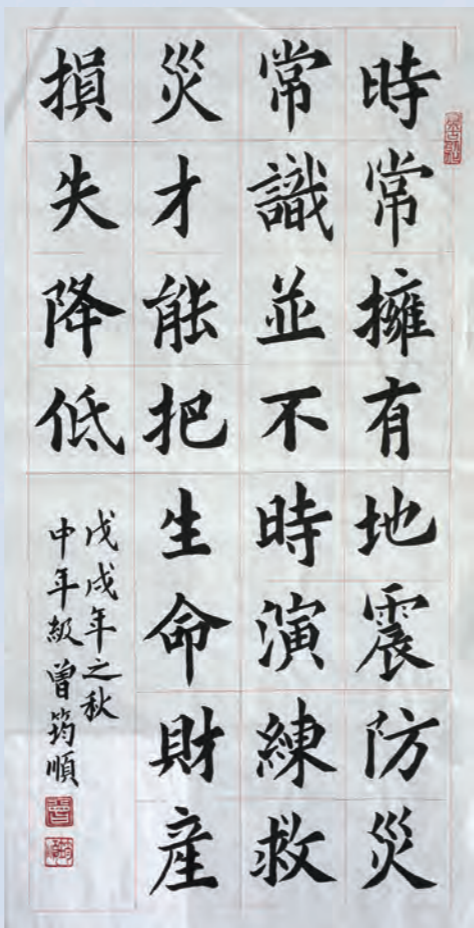 時常擁有地震防災
常識並不時演練救
災才能把生命財產
損失降低
戊戌年之秋
中年級曾筠順